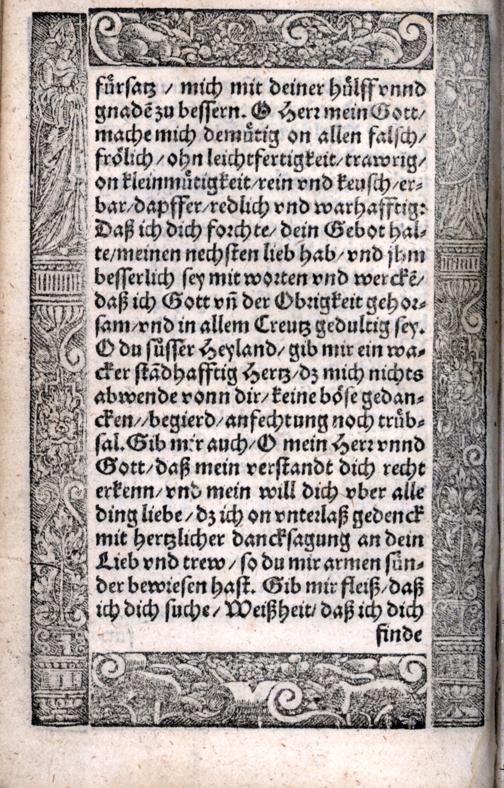 fürsatz / mich mit deiner hülff vnnd
gnadē zu bessern. O Herr mein Gott/
mache mich demütig on allen falsch/
frölich / ohn leichtfertigkeit / trawrig/
on kleinmütigkeit / rein vnd keusch / er-
bar / dapffer / redlich vnd warhafftig:
Daß ich dich forchte / dein Gebot hal-
te / meinen nechsten lieb hab / vnd jhm
besserlich sey mit worten vnd werckē /
daß ich Gott vñ der Obrigkeit gehor-
sam / vnd in allem Creutz gedultig sey.
O du süsser Heyland / gib mir ein wa-
cker stādhafftig Hertz / dz mich nichts
abwende vonn dir / keine böse gedan-
cken / begierd / anfechtung noch trüb-
sal. Gib mir auch / O mein Herr vnnd
Gott / daß mein verstandt dich recht
erkenn / vnd mein will dich vber alle
ding liebe / dz ich on vnterlaß gedenck
mit hertzlicher dancksagung an dein
Lieb vnd trew / so du mir armen sün-
der bewiesen hast. Gib mir fleiß / daß
ich dich suche / Weißheit / daß ich dich
finde